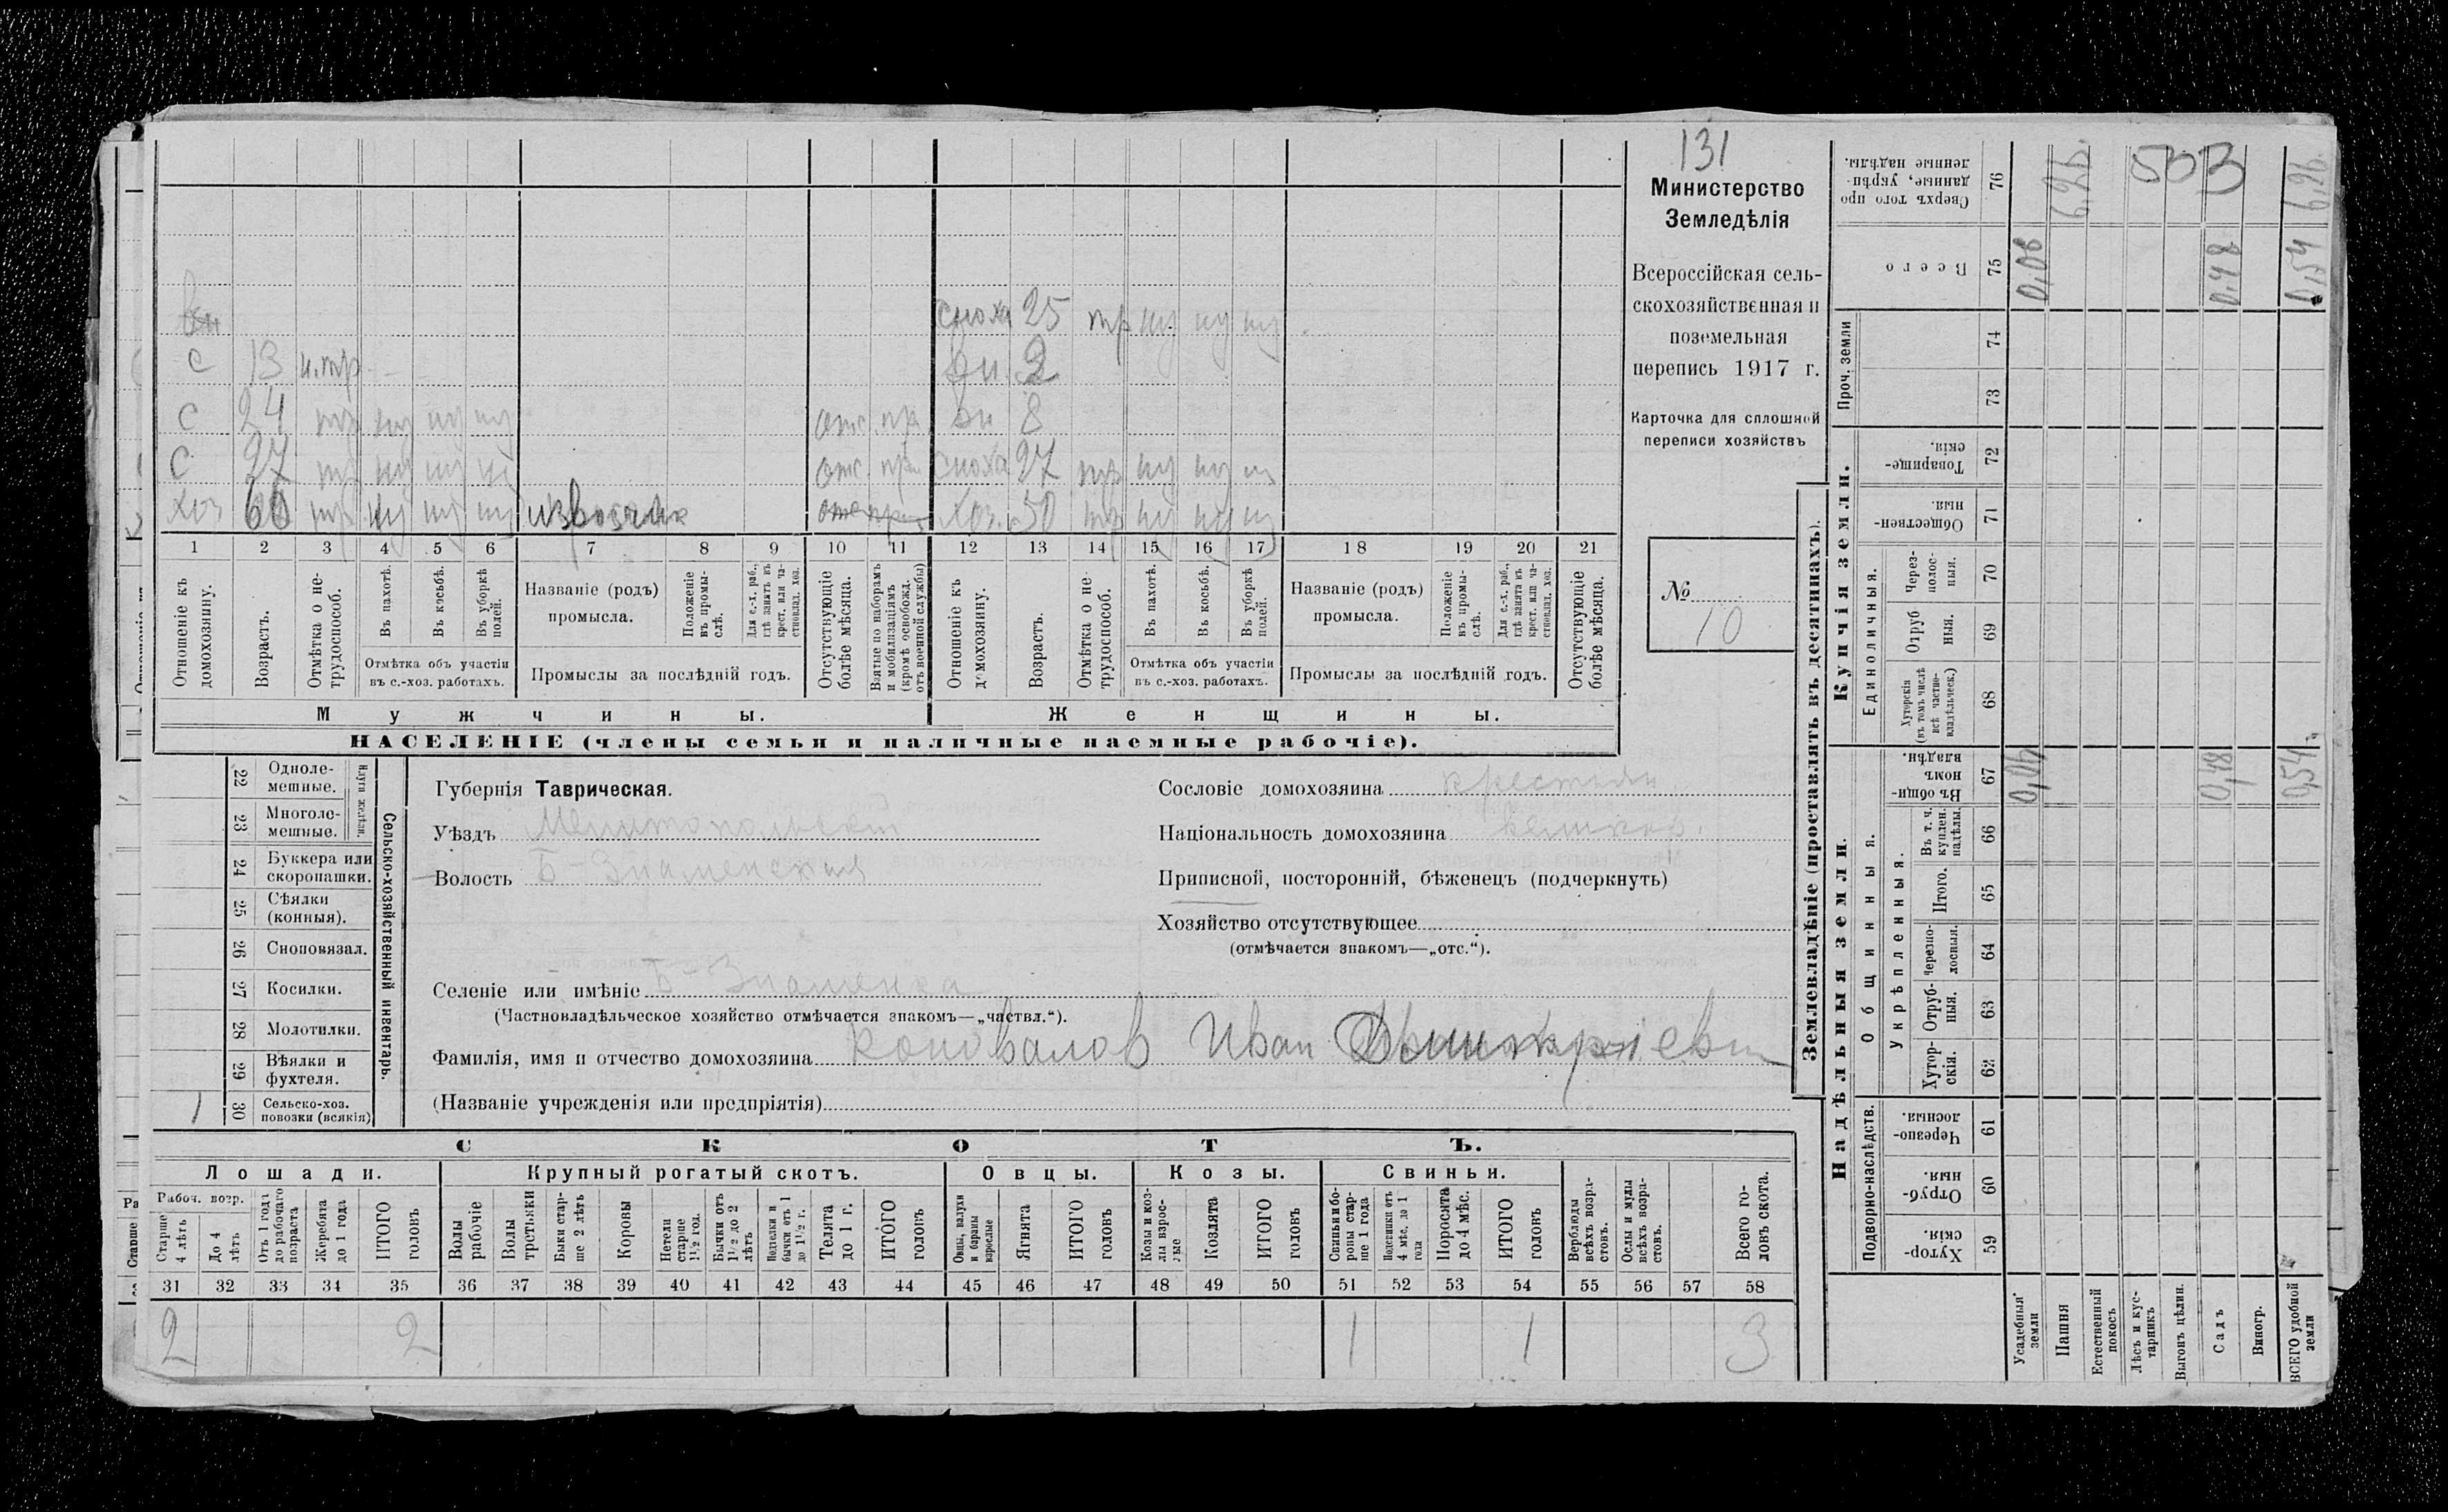 131
Министерство
Земледѣлія
Всероссійская сель-
скохозяйственная и
поземельная
перепись 1917 г.
Карточка для сплошной
переписи хозяйствъ
№
10
сноха 25 тр
С 13 н.тр дн. 2
С 24 дн 8
С 27 сноха 27
хоз 60 извозчик хоз. 50
1 2 3 4 5 6 7 8 9 10 11 12 13 14 15 16 17 18 19 20 21
Отношеніе къ домохозяину.
Возрастъ.
Отмѣтка о не-трудоспособ.
Въ пахотѣ.
Въ косьбѣ.
Въ уборкѣ полей.
Отмѣтка объ участіи
въ с.-хоз. работахъ.
Названіе (родъ)
промысла.
Положеніе въ промы-слѣ.
Для с.-х. раб., гдѣ занятъ въ крест. или ча-стновлад. хоз.
Промыслы за послѣдній годъ.
Отсутствующіе болѣе мѣсяца.
Взятые по наборамъ и мобилизаціямъ (кромѣ освобожд. отъ военной службы)
Отношеніе къ домохозяину.
Возрастъ.
Отмѣтка о не-трудоспособ.
Въ пахотѣ.
Въ косьбѣ.
Въ уборкѣ полей.
Отмѣтка объ участіи
въ с.-хоз. работахъ.
Названіе (родъ)
промысла.
Положеніе въ промы-слѣ.
Для с.-х. раб., гдѣ занята въ крест. или ча-стновлад. хоз.
Промыслы за послѣдній годъ.
Отсутствующіе болѣе мѣсяца.
Мужчины. Женщины.
НАСЕЛЕНІЕ (члены семьи и наличные наемные рабочіе).
22 Одноле-мешные.
23 Многоле-мешные.
Плуги желѣзн.
24 Буккера или скоропашки.
25 Сѣялки (конныя).
26 Сноповязал.
27 Косилки.
28 Молотилки.
29 Вѣялки и фухтеля.
1 30 Сельско-хоз. повозки (всякія)
Сельско-хозяйственный инвентарь.
Губернія Таврическая.
Уѣздъ Мелитопольскій
Волость Б-Знаменская
Сословіе домохозяина крестьян
Національность домохозяина великор.
Приписной, посторонній, бѣженецъ (подчеркнуть)
Хозяйство отсутствующее
(отмѣчается знакомъ—„отс.“).
Селеніе или имѣніе Б-Знаменка
(Частновладѣльческое хозяйство отмѣчается знакомъ—„частвл.“).
Фамилія, имя и отчество домохозяина Коновалов Иван
(Названіе учрежденія или предпріятія)
СКОТЪ.
Лошади. Крупный рогатый скотъ. Овцы. Козы. Свиньи.
Рабоч. возр.
Старше 4 лѣтъ
До 4 лѣтъ
Отъ 1 года до рабочаго возраста
Жеребята до 1 года
ИТОГО головъ
Волы рабочіе
Волы третьяки
Быки стар-ше 2 лѣтъ
Коровы
Нетели старше 1½ год.
Бычки отъ 1½ до 2 лѣтъ
Нетелки и бычки отъ 1 до 1½ г.
Телята до 1 г.
ИТОГО головъ
Овцы, валухи и бараны взрослые
Ягнята
ИТОГО головъ
Козы и коз-лы взрос-лые
Козлята
ИТОГО головъ
Свиньи и бо-ровы стар-ше 1 года
Подсвинки отъ 4 мѣс. до 1 года
Поросята до 4 мѣс.
ИТОГО головъ
Верблюды всѣхъ возра-стовъ.
Ослы и мулы всѣхъ возра-стовъ.
Всего го-ловъ скота.
31 32 33 34 35 36 37 38 39 40 41 42 43 44 45 46 47 48 49 50 51 52 53 54 55 56 57 58
2 2 1 1 3
Землевладѣніе (проставлять въ десятинахъ).
Надѣльныя земли. Купчія земли. Проч. земли
Подворно-наслѣдств. Общинныя. Единоличныя.
Укрѣпленныя.
Сверхъ того про-данные, укрѣп-ленные надѣлы. 76 6,26 503 6,26
Всего 75 0,06 0,48 0,54
74
73
Товарище-скія. 72
Обществен-ныя. 71
Через-полос-ныя. 70
Отруб ныя. 69
Хуторскія (въ томъ числѣ всѣ частно-владѣльческ.) 68
Въ общи-номъ владѣн. 67 0,06 0,48 0,54
Въ т. ч. куплен. надѣлы. 66
Итого. 65
Черезпо-лосныя. 64
Отруб-ныя. 63
Хутор-скія. 62
Черезпо-лосныя. 61
Отруб-ныя. 60
Хутор-скія. 59
Усадебныя земли
Пашня
Естественный покосъ
Лѣсъ и кус-тарникъ
Выгонъ цѣлин.
Садъ
Виногр.
ВСЕГО удобной земли